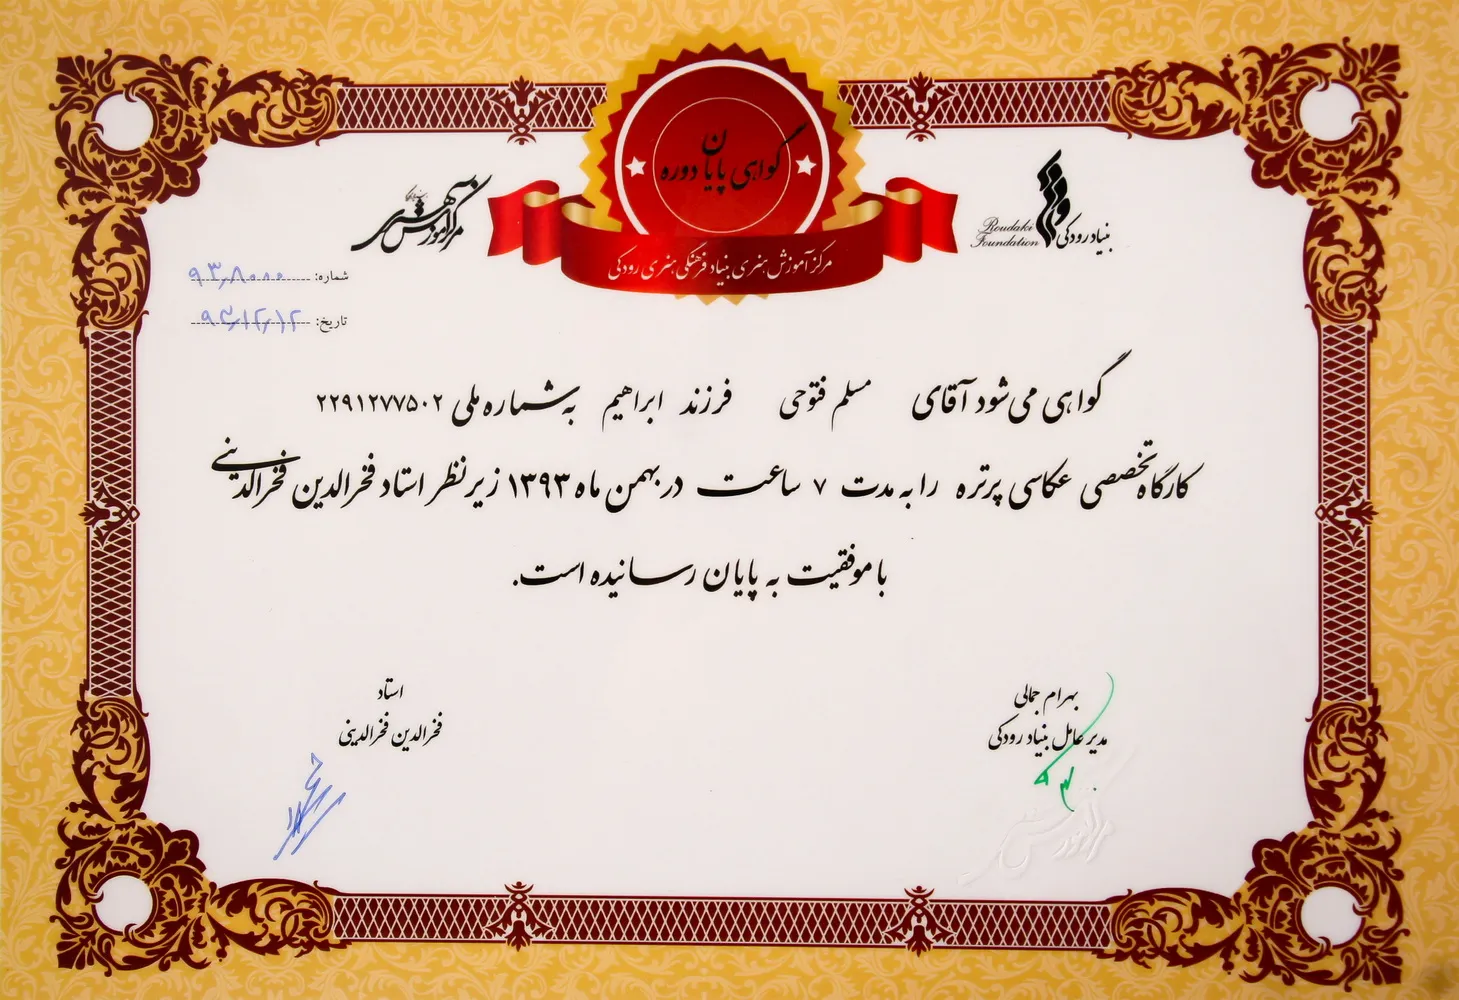 گواهی پایان دوره
مرکز آموزش هنری بنیاد فرهنگی هنری رودکی
بنیاد رودکی
Roudaki
Foundation
مرکز آموزش هنری
شماره: ۹۳٫۸۰۰۰
تاریخ: ۹۳٫۱۲٫۱۲
گواهی می‌شود آقای مسلم فتوحی فرزند ابراهیم به شماره ملی ۲۲۹۱۲۷۷۵۰۲
کارگاه تخصصی عکاسی پرتره را به مدت ۷ ساعت در بهمن ماه ۱۳۹۳ زیر نظر استاد فخرالدین فخرالدینی
با موفقیت به پایان رسانیده است.
بهرام جمالی
مدیر عامل بنیاد رودکی
استاد
فخرالدین فخرالدینی